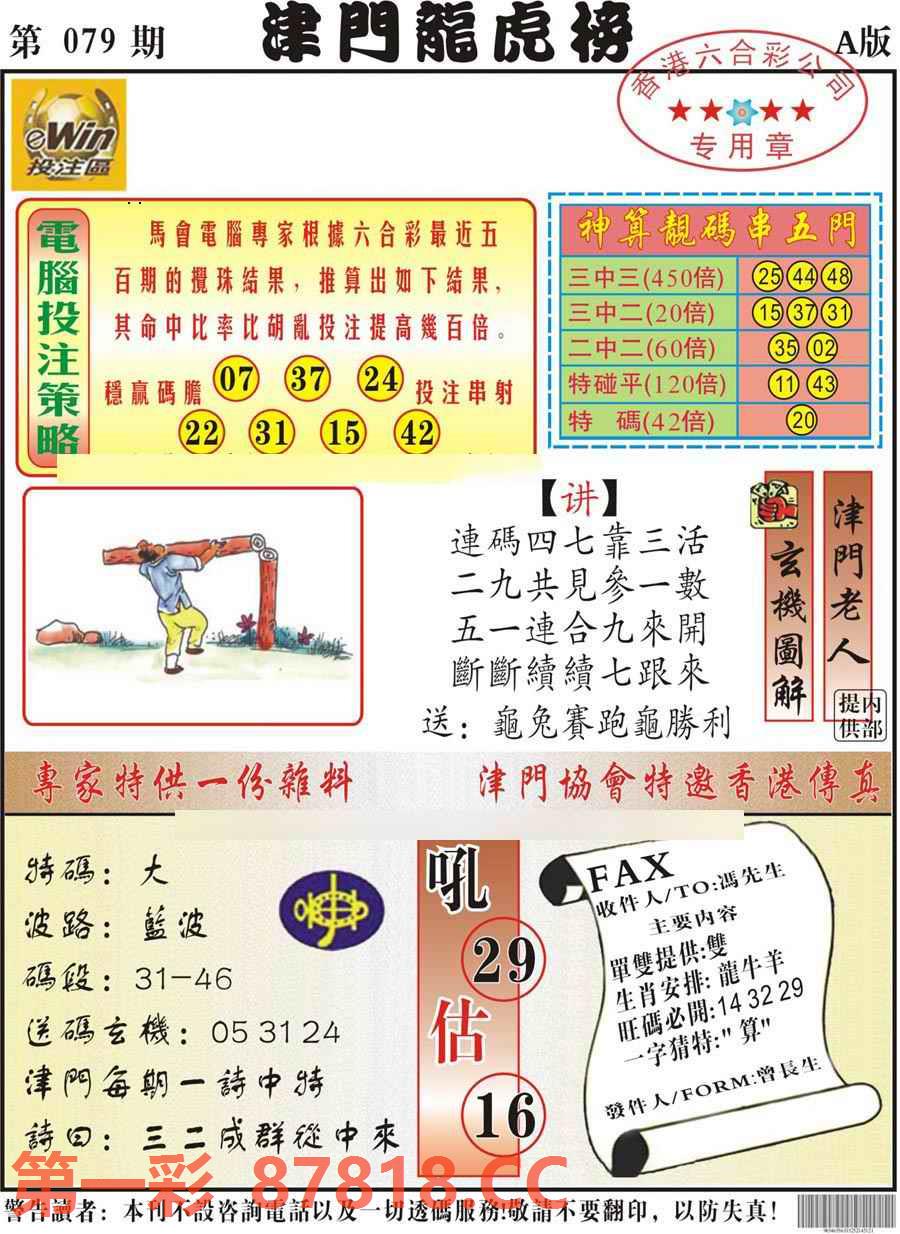 第 079 期
津門龍虎榜
A版
香港六合彩公司
专用章
eWin
投注區
電腦投注策略
馬會電腦專家根據六合彩最近五
百期的攪珠結果，推算出如下結果，
其命中比率比胡亂投注提高幾百倍。
穩贏碼膽 07 37 24 投注串射
22 31 15 42
神算靚碼串五門
三中三(450倍) 25 44 48
三中二(20倍) 15 37 31
二中二(60倍) 35 02
特碰平(120倍) 11 43
特 碼(42倍) 20
【讲】
連碼四七靠三活
二九共見參一數
五一連合九來開
斷斷續續七跟來
送：龜兔賽跑龜勝利
玄機圖解
津門老人
提供
内部
專家特供一份雜料
津門協會特邀香港傳真
特碼：大
波路：藍波
碼段：31-46
送碼玄機：05 31 24
津門每期一詩中特
詩曰：三二成群從中來
吼
29
估
16
FAX
收件人/TO:馮先生
主要内容
單雙提供:雙
生肖安排:龍牛羊
旺碼必開:14 32 29
一字猜特:"算"
發件人/FORM:曾長生
第一彩 87818.CC
警告讀者：本刊不設咨詢電話以及一切透碼服務!敬請不要翻印，以防失真！